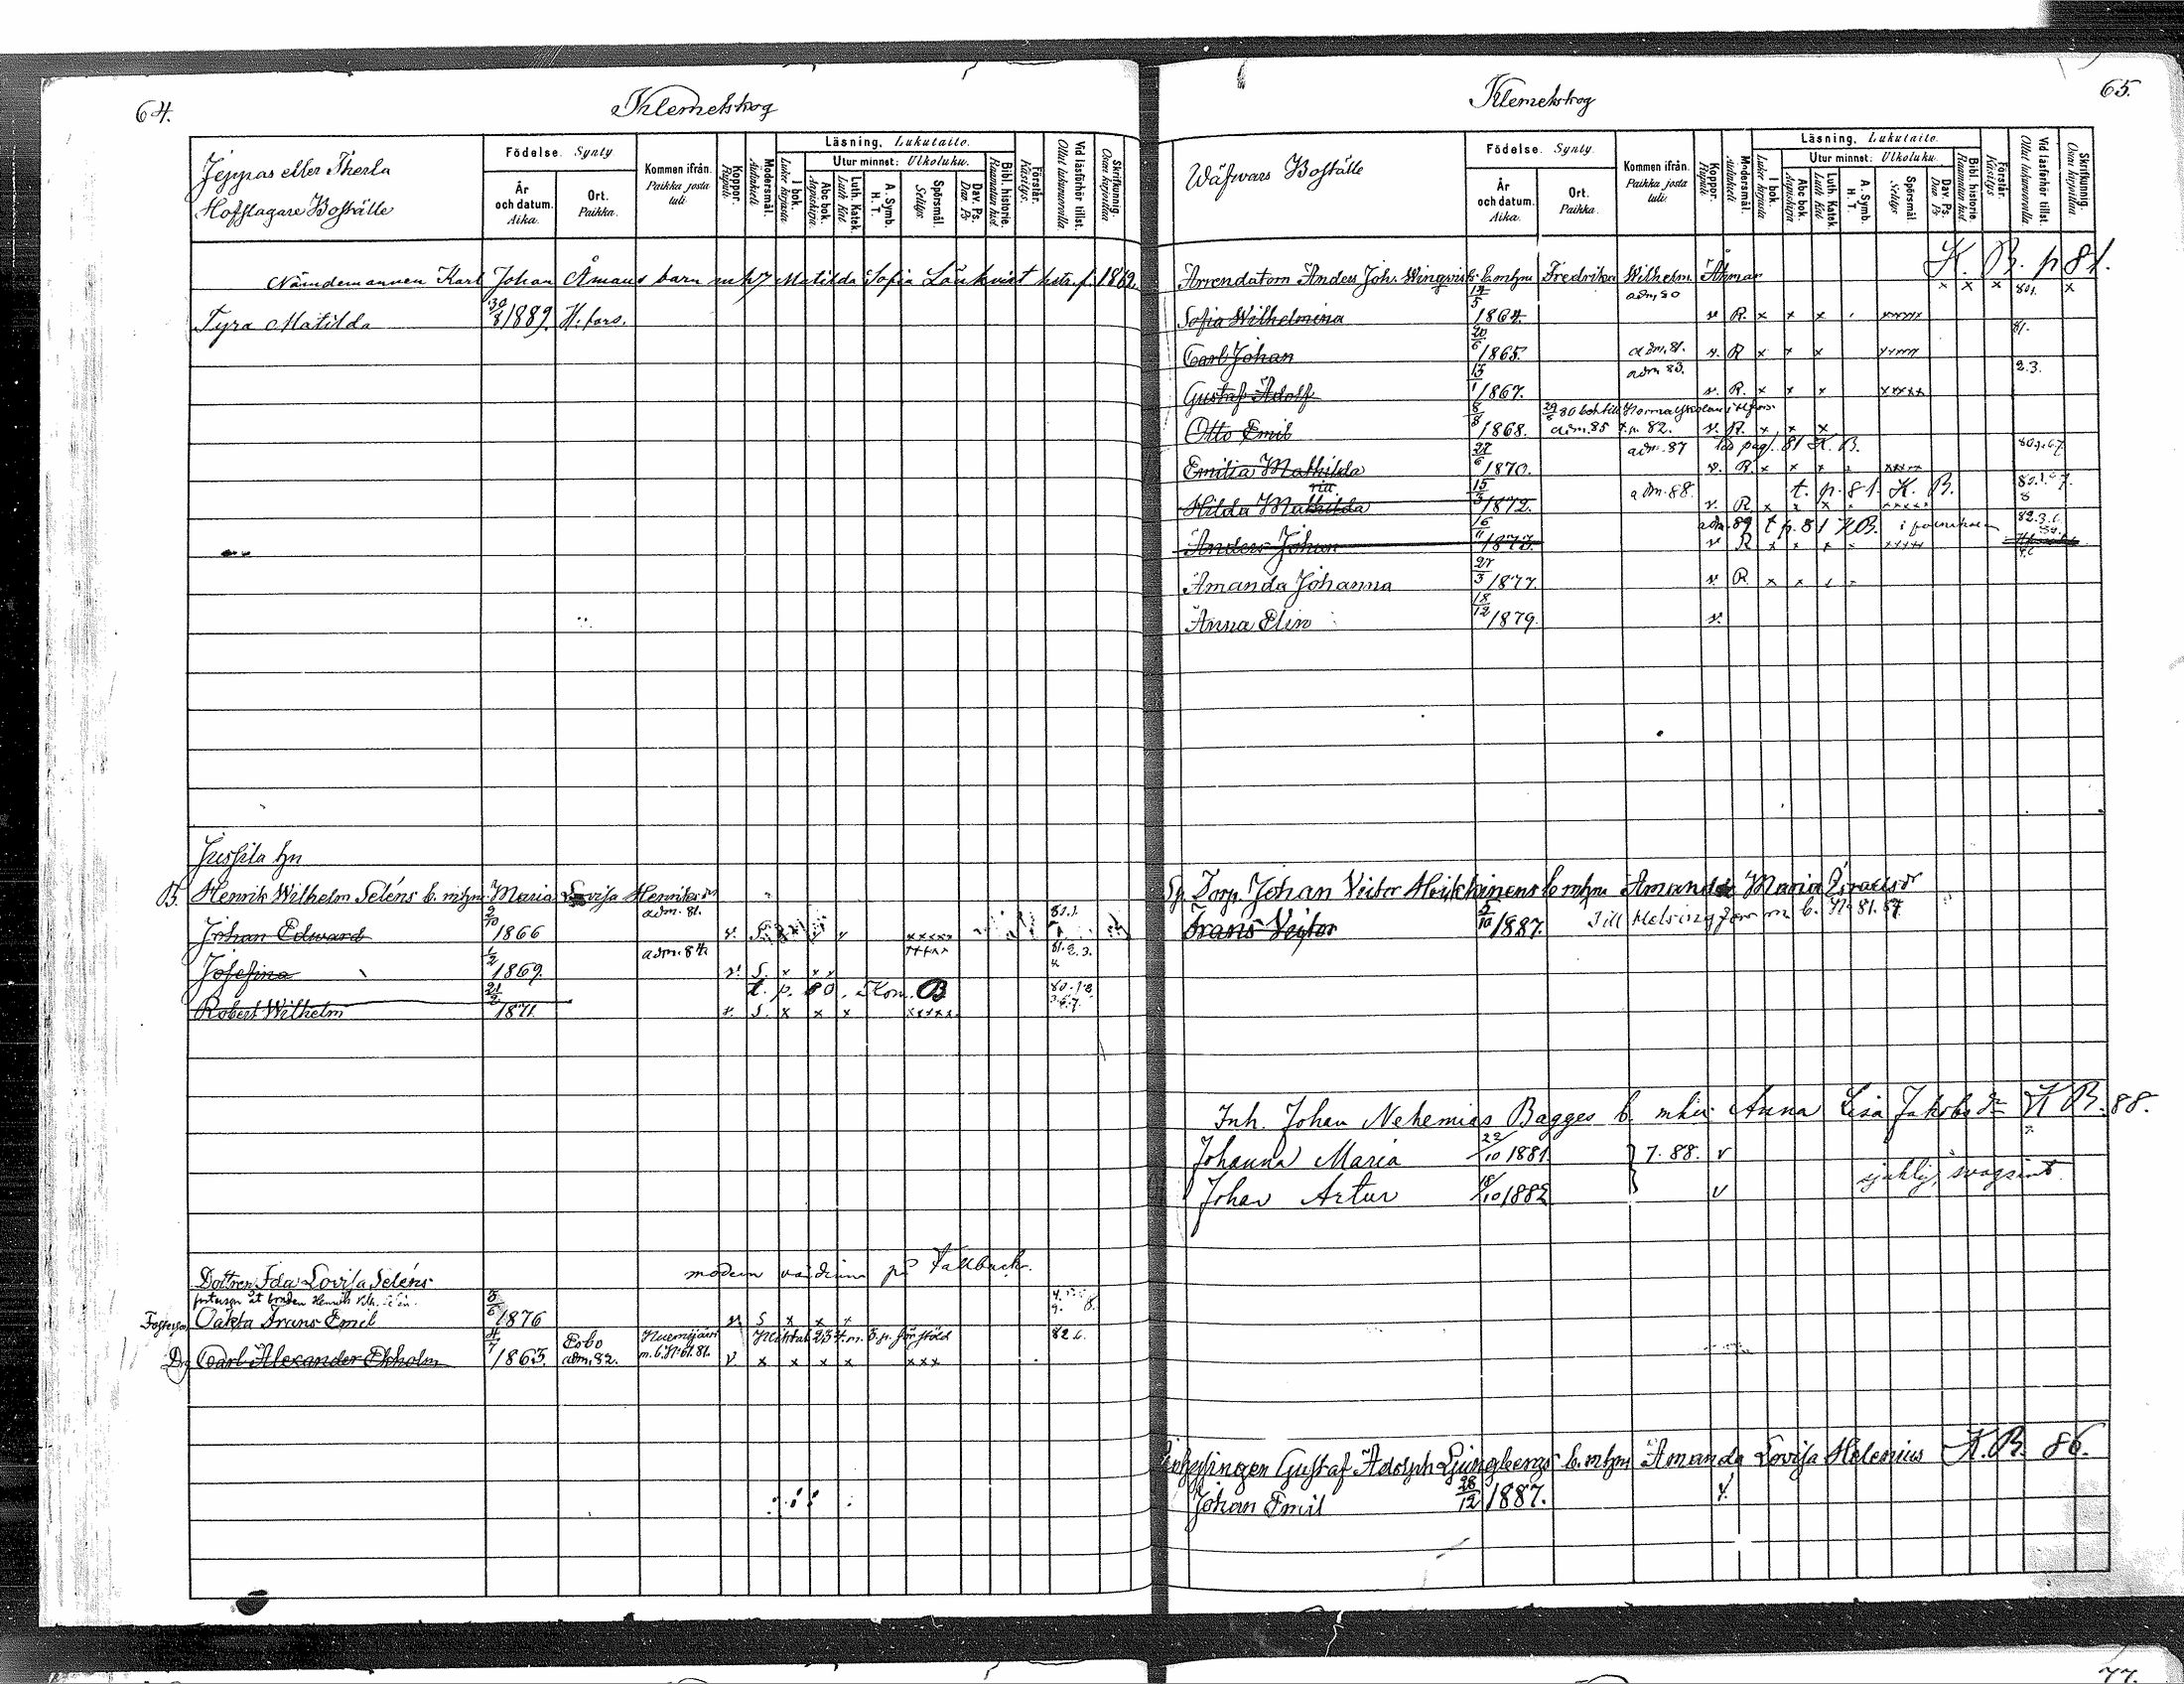 64.
Klemetskog
Jeppas eller Therla
Hofslagare Boställe
Födelse. Synty
År och datum. Aika.
Ort. Paikka.
Kommen ifrån. Paikka josta tuli.
Koppor. Rupuli.
Modersmål. Äidinkieli
Läsning. Lukutaito.
I bok. Luku kirjasta
Utur minnet: Ulkoluku.
Abc bok. Aapiskirja.
Luth. Katek. Luth. Kat.
A. Symb. H. T.
Spörsmål. Selitys.
Dav. Ps. Dav. Ps.
Bibl. historie. Raamatun hist.
Förstår. Käsitys.
Vid läsförhör tillst. Ollut lukuvuorolla.
Skrifkunnig. Osaa kirjoittaa
Nämdemannen Karl Johan Åmans barn m h 7 Matilda Sofia Lönkvist hstr. f. 1862.
Tyra Matilda 30/8 1889. H.fors.
Jussila hn
B. Henrik Wilhelm Seléns b. mhm. Maria Lovisa Henriksdr
Johan Edward 9/10 1866 adm. 81. v. S. xxxxx
Josefina 1/2 1869. adm. 84. v. S. x x x 81.2.3.
t. p. 80. Kom. B
Robert Wilhelm 21/2 1871. v. S. x x x xxxxx
Dottren Ida Lovisa Seléns
modern värdinna på Tallback.
Fosterson Oäkta Frans Emil 8/6 1876 v. S x x x
Drg Carl Alexander Ekholm 4/7 1863. Esbo adm. 82. m. b. N:o 61. 81. v x x x x xxx 82.6.
65.
Klemetskog
Wäfvars Boställe
Födelse. Synty.
År och datum. Aika.
Ort. Paikka.
Kommen ifrån. Paikka josta tuli.
Koppor. Rupuli.
Modersmål. Äidinkieli
Läsning. Lukutaito.
I bok. Luku kirjasta
Utur minnet: Ulkoluku.
Abc bok. Aapiskirja
Luth. Katek. Luth. Kat
A. Symb. H. T.
Spörsmål. Selitys
Dav. Ps. Dav. Ps
Bibl. historie. Raamatun hist.
Förstår. Käsitys.
Vid läsförhör tillst. Ollut lukuvuorolla
Skrifkunnig. Osaa kirjoittaa
K. B. p 81.
Arrendatorn Anders Joh. Wingvists b. mhm Fredrika Wilhelm. Åhman
Sofia Wilhelmina 12/5 1864. adm. 80 v. R. x x x xxxxx 801. x
Carl Johan 20/6 1865. adm. 81. v. R x x x xxxxx 81.
Gustaf Adolf 13/1 1867. adm 83. v. R. x x x xxxxx 2.3.
29/6 80 bet. till Normalskolan i H.fors.
Otto Emil 8/8 1868. adm. 85 t. p. 82. v. R. x x x
Emilia Mathilda 28/6 1870. adm. 87 pag. 81 K. B. v. R. x x x xxxxx
Hilda Mathilda 15/3 1872. adm. 88. t. p. 81. K. B. v. R. x x x xxxxx
Anders Johan 16/11 1873. adm. 89 t p. 81 K B. v R x x x xxxxx
Amanda Johanna 27/3 1877. v. R x x
Anna Elin 18/12 1879. v.
Torp. Johan Victor Heikkinens b mhm Amanda Maria Israelsdr
Frans Victor 5/10 1887. Till Helsingfors m. b. No 81. 87
Inh. Johan Nehemias Bagges b. mhu Anna Lisa Jakobsdr K B. 88.
Johanna Maria 22/10 1881 7. 88. v
Johan Artur 18/10 1882 v sjuklig, svagsint
Gustaf Adolph Ljungbergs b. mhm Amanda Lovisa Helenius K. B. 86.
Johan Emil 28/12 1887. v.
77.